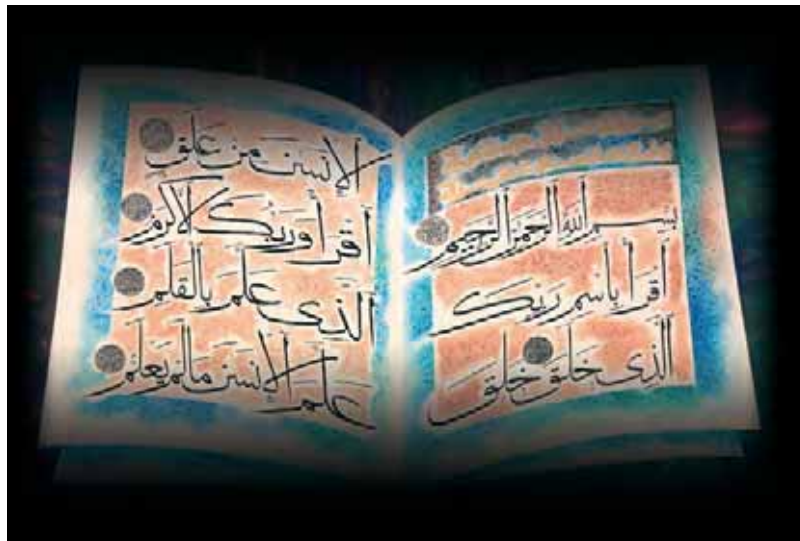 بِسْمِ ٱللَّهِ ٱلرَّحْمَٰنِ ٱلرَّحِيمِ
ٱقْرَأْ بِٱسْمِ رَبِّكَ
ٱلَّذِى خَلَقَ خَلَقَ
ٱلْإِنسَٰنَ مِنْ عَلَقٍ
ٱقْرَأْ وَرَبُّكَ ٱلْأَكْرَمُ
ٱلَّذِى عَلَّمَ بِٱلْقَلَمِ
عَلَّمَ ٱلْإِنسَٰنَ مَا لَمْ يَعْلَمْ